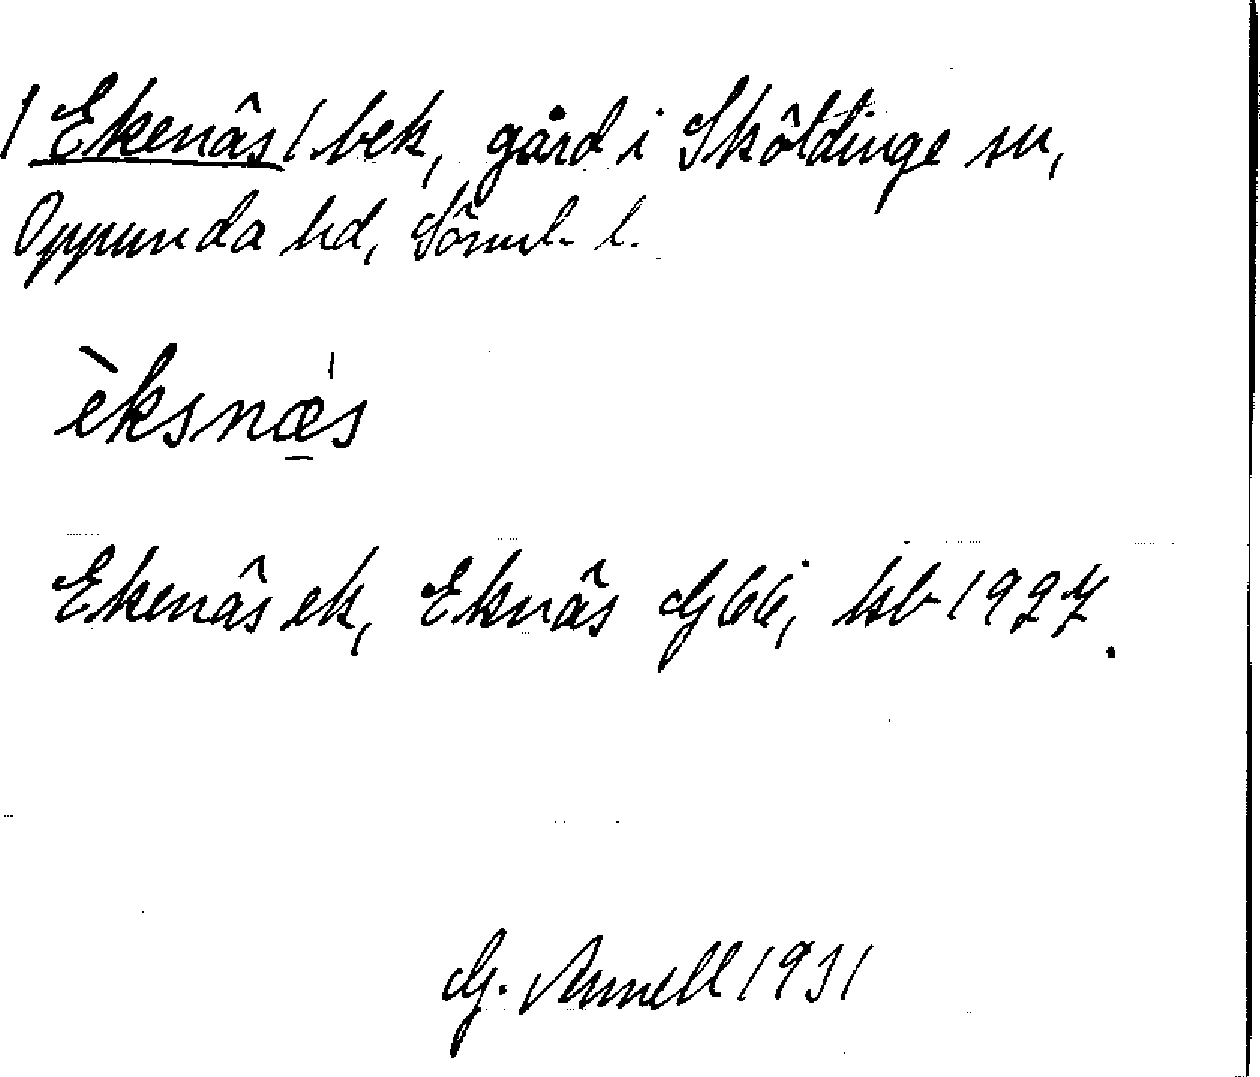 /Ekenäs/ bek, gård i Sköldinge sn,
Oppunda hd, Söml. l.
èksnæ̠s
Ekenäs ek, Eknäs G66, hb 1927.
G. Annell 1931